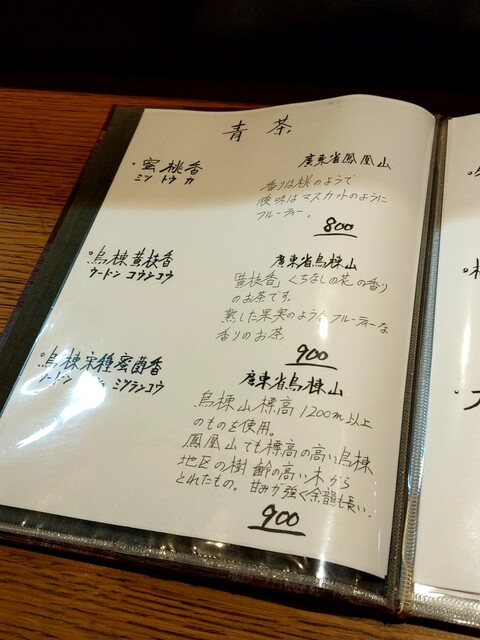 青茶
・蜜桃香 廣東省鳳凰山
ミツ トウ カ
香りは桃のようで
後味はマスカットのように
フルーティー。
800
・烏棟黄枝香 廣東省烏棟山
ウードン コウシコウ
「黄枝香」くちなしの花の香り
のお茶です。
熟した果実のようなフルーティーな
香りのお茶
900
・烏棟宋種蜜蘭香 廣東省烏棟山
ミツランコウ
烏棟山標高1200m以上
のものを使用。
鳳凰山でも標高の高い烏棟
地区の樹齢の高い木から
とれたもの。甘みが強く余韻も長い。
900